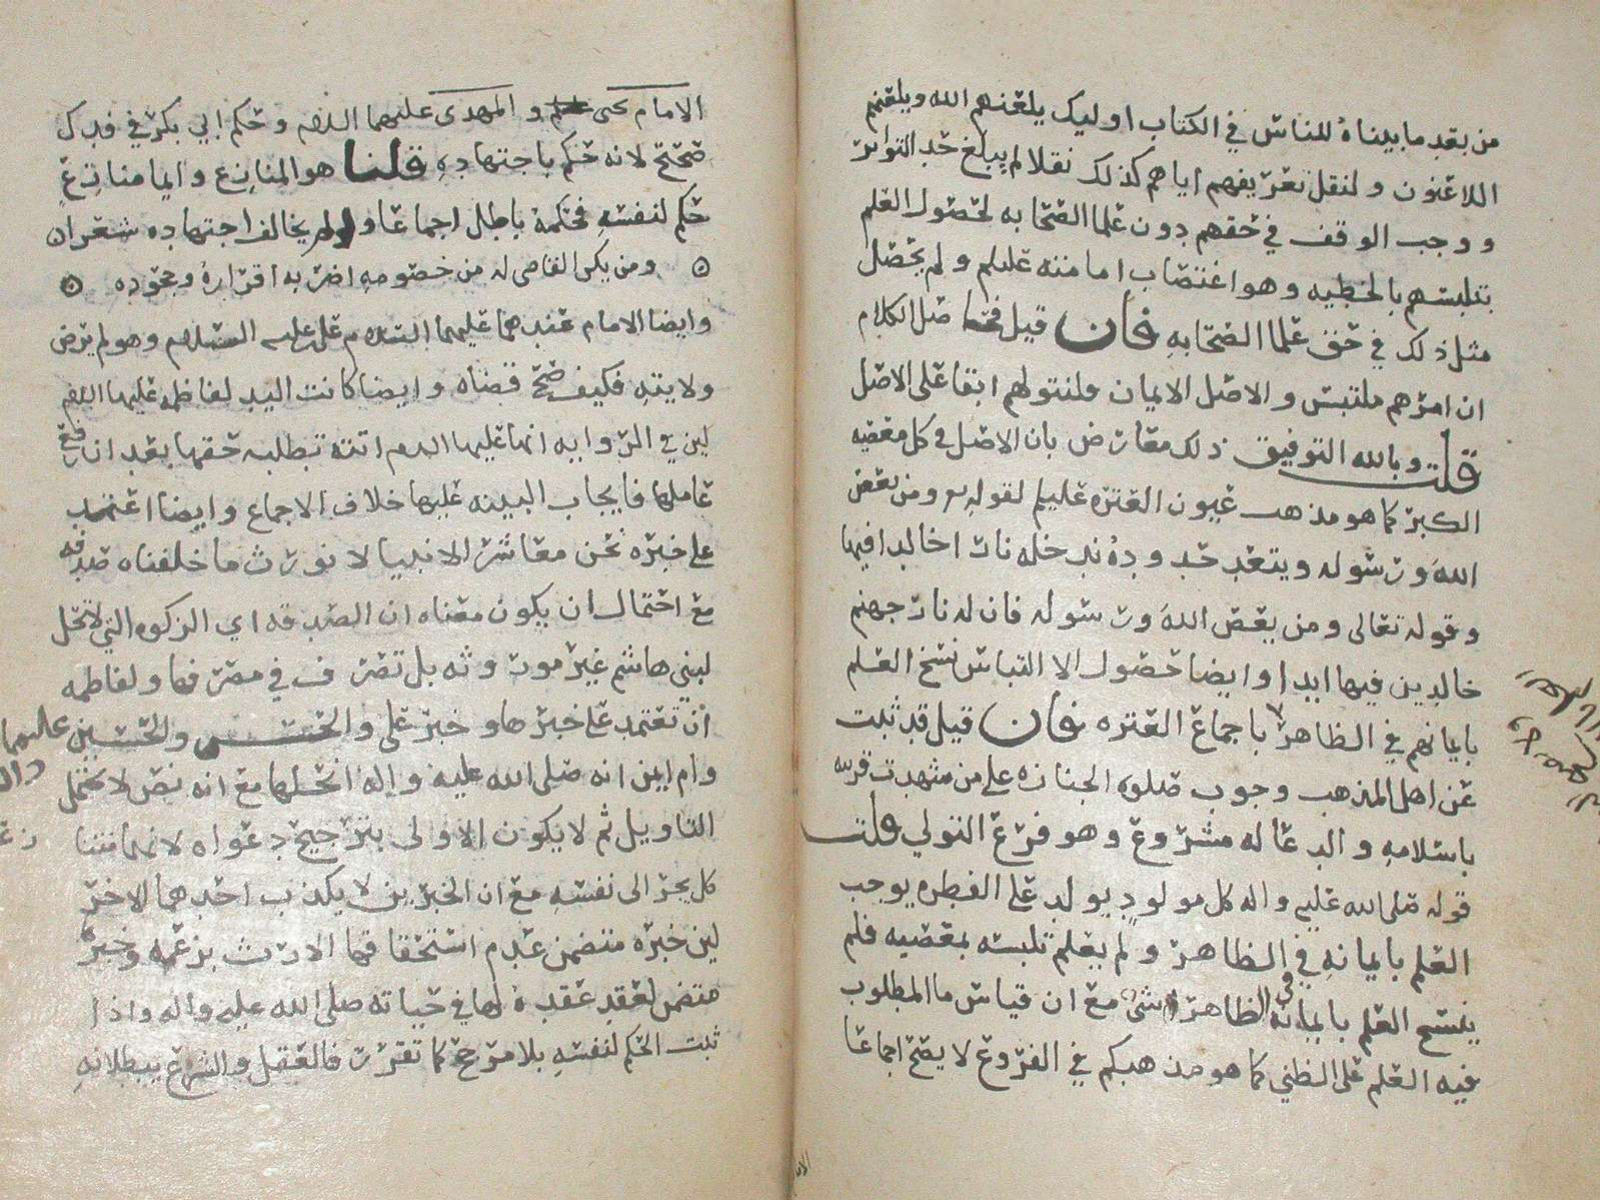 من بعد ما بيناه للناس في الكتاب اوليك يلعنهم الله ويلعنهم
اللاعنون ولنقل تعريفهم اياهم كذلك نقلا لم يبلغ حد التواتر
ووجب الوقف في حقهم دون علما الصحابه لحصول العلم
بتلبسهم بالخطيه وهو اغتصاب امامته عليلم ولم يحصل
مثل ذلك في حق علما الصحابه فان قيل اصل الكلام
ان امرهم ملتبس والاصل الايمان ولنتولهم ابقا على الاصل
قلت وبالله التوفيق ذلك معارض بان الاصل في كل معصيه
الكبر كما هو مذهب عيون العتره عليلم لقوله ومن يعص
الله ورسوله ويتعد حدوده ندخله نارا خالدا فيها
وقوله تعالى ومن يعص الله ورسوله فان له نار جهنم
خالدين فيها ابدا وايضا حصول الالتباس نسخ العلم
بايمانهم في الظاهر باجماع العتره فان قيل قد ثبت
عن اهل المذهب وجوب صلوه الجنازه على من شهدت قرينه
باسلامه والدعا له مشروع وهو فرع التولي قلت
قوله صلى الله عليه واله كل مولود يولد على الفطره يوجب
العلم بايمانه في الظاهر ولم يعلم تلبسه بمعصيه فلم
ينسخ العلم بايمانه في الظاهر شي مع ان قياس ما المطلوب
فيه العلم على الظني كما هو مذهبكم في الفروع لا يصح اجماعا
الامام يحيى والمهدي عليهما السلام وحكم ابي بكر في فدك
صحيح لانه حكم باجتهاده قلنا هو المنازع وايما منازع
حكم لنفسه فحكمه باطل اجماعا ولم يخالف اجتهاده شعرا
ومن يكن القاضي له من خصومه اضر به اقراره وجحوده
وايضا الامام عندهما عليهما السلام علي عليه السلام وهو لم يرض
ولايته فكيف صح قضاه وايضا كانت اليد لفاطمه عليها السلام
لان في الروايه انها عليها السلام اتته تطلبه حقها بعد ان رفع
عاملها فايجاب البينه عليها خلاف الاجماع وايضا اعتمد
على خبره نحن معاشر الانبيا لا نورث ما خلفناه صدقه
مع احتمال ان يكون معناه ان الصدقه اي الزكوه التي لا تحل
لبني هاشم غير موروثه بل تصرف في مصرفها ولفاطمه
ان تعتمد على خبرها وخبر علي والحسن والحسين عليهما
وام ايمن انه صلى الله عليه واله انحلها مع انه نص لا يحتمل
التاويل ثم لا يكون الاولى بترجيح دعواه لانهما متنا
كل يجر الى نفسه مع ان الخبرين لا يكذب احدهما الاخر
لين خبره متضمن عدم استحقاقها الارث بزعمه وخبرها
متضمن لعقد عقده لها في حياته صلى الله عليه واله واذا
ثبت الحكم لنفسه بلا مرجح كما تقرر فالعقل والشرع يبطلانه